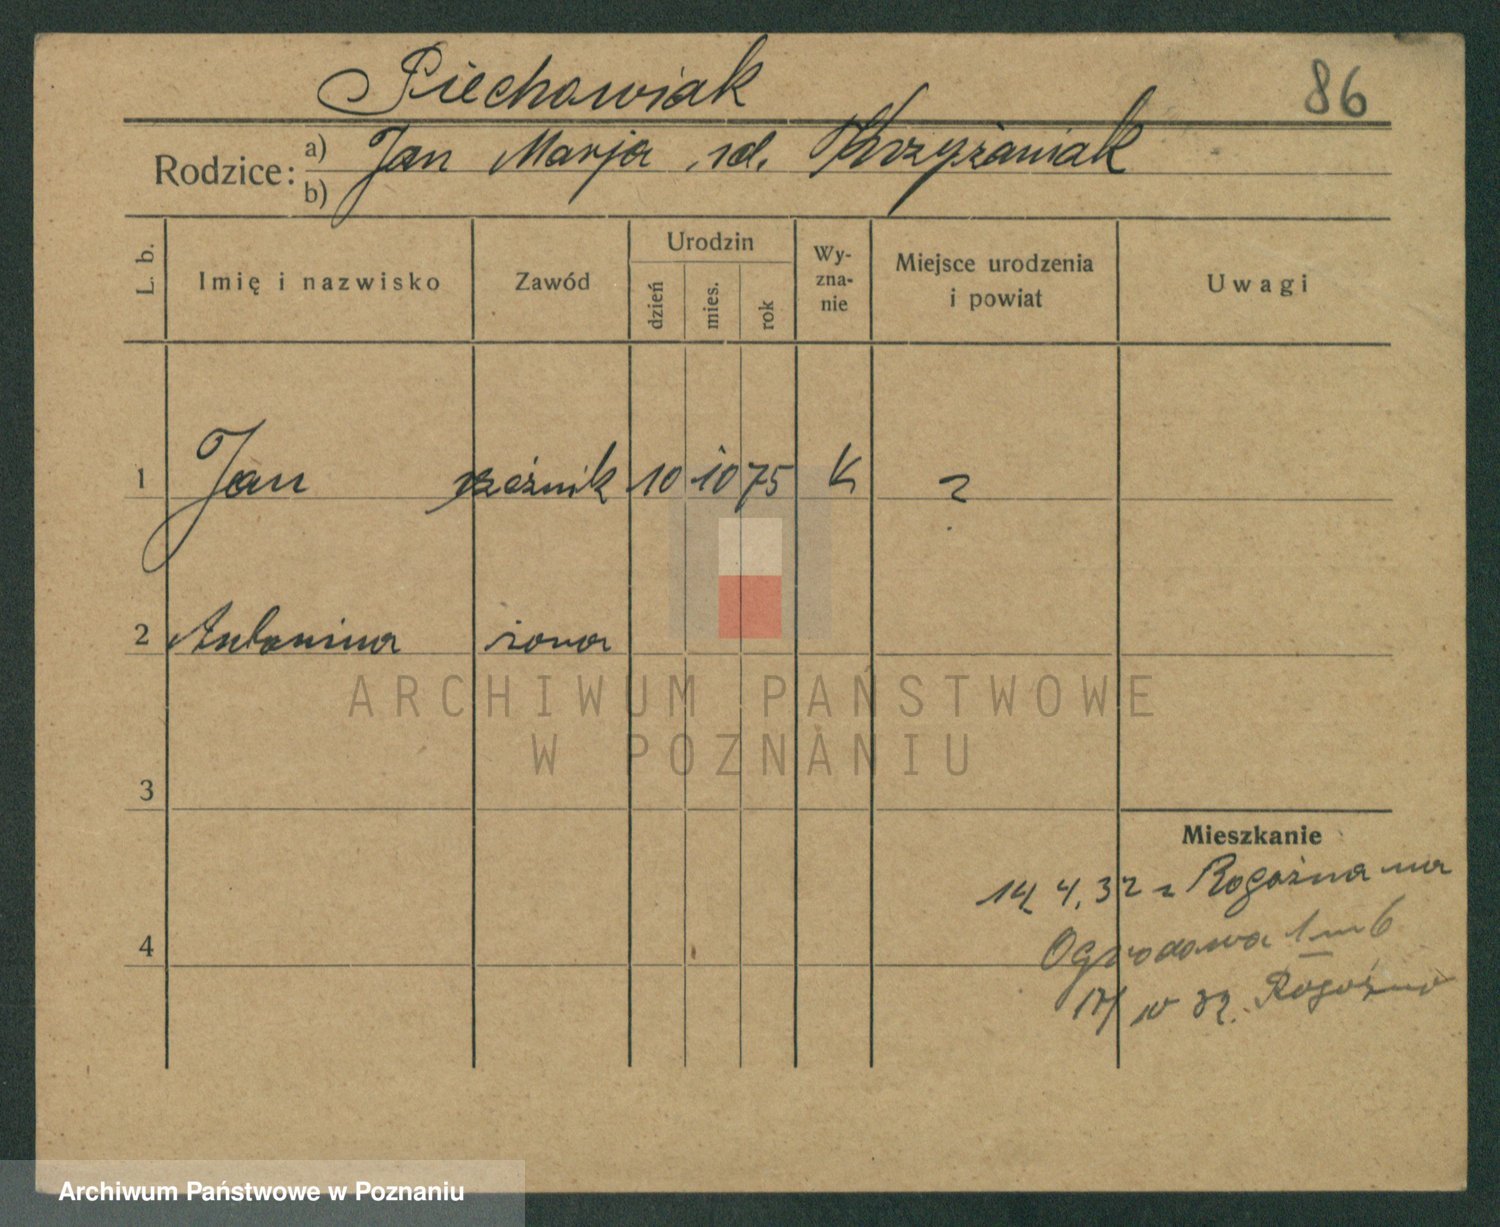 Piechowiak
86
Rodzice: a) Jan Marja zd. Krzyżaniak
b)
L. b.
Imię i nazwisko
Zawód
Urodzin
dzień
mies.
rok
Wy-
zna-
nie
Miejsce urodzenia
i powiat
Uwagi
1 Jan rzeźnik 10 10 75 K ?
2 Antonina żona
ARCHIWUM PAŃSTWOWE
W POZNANIU
3
Mieszkanie
14.4.32 z Rogoźna na
4
Ogrodowa 1 m 6
17/ 10 32. Rogoźno
Archiwum Państwowe w Poznaniu